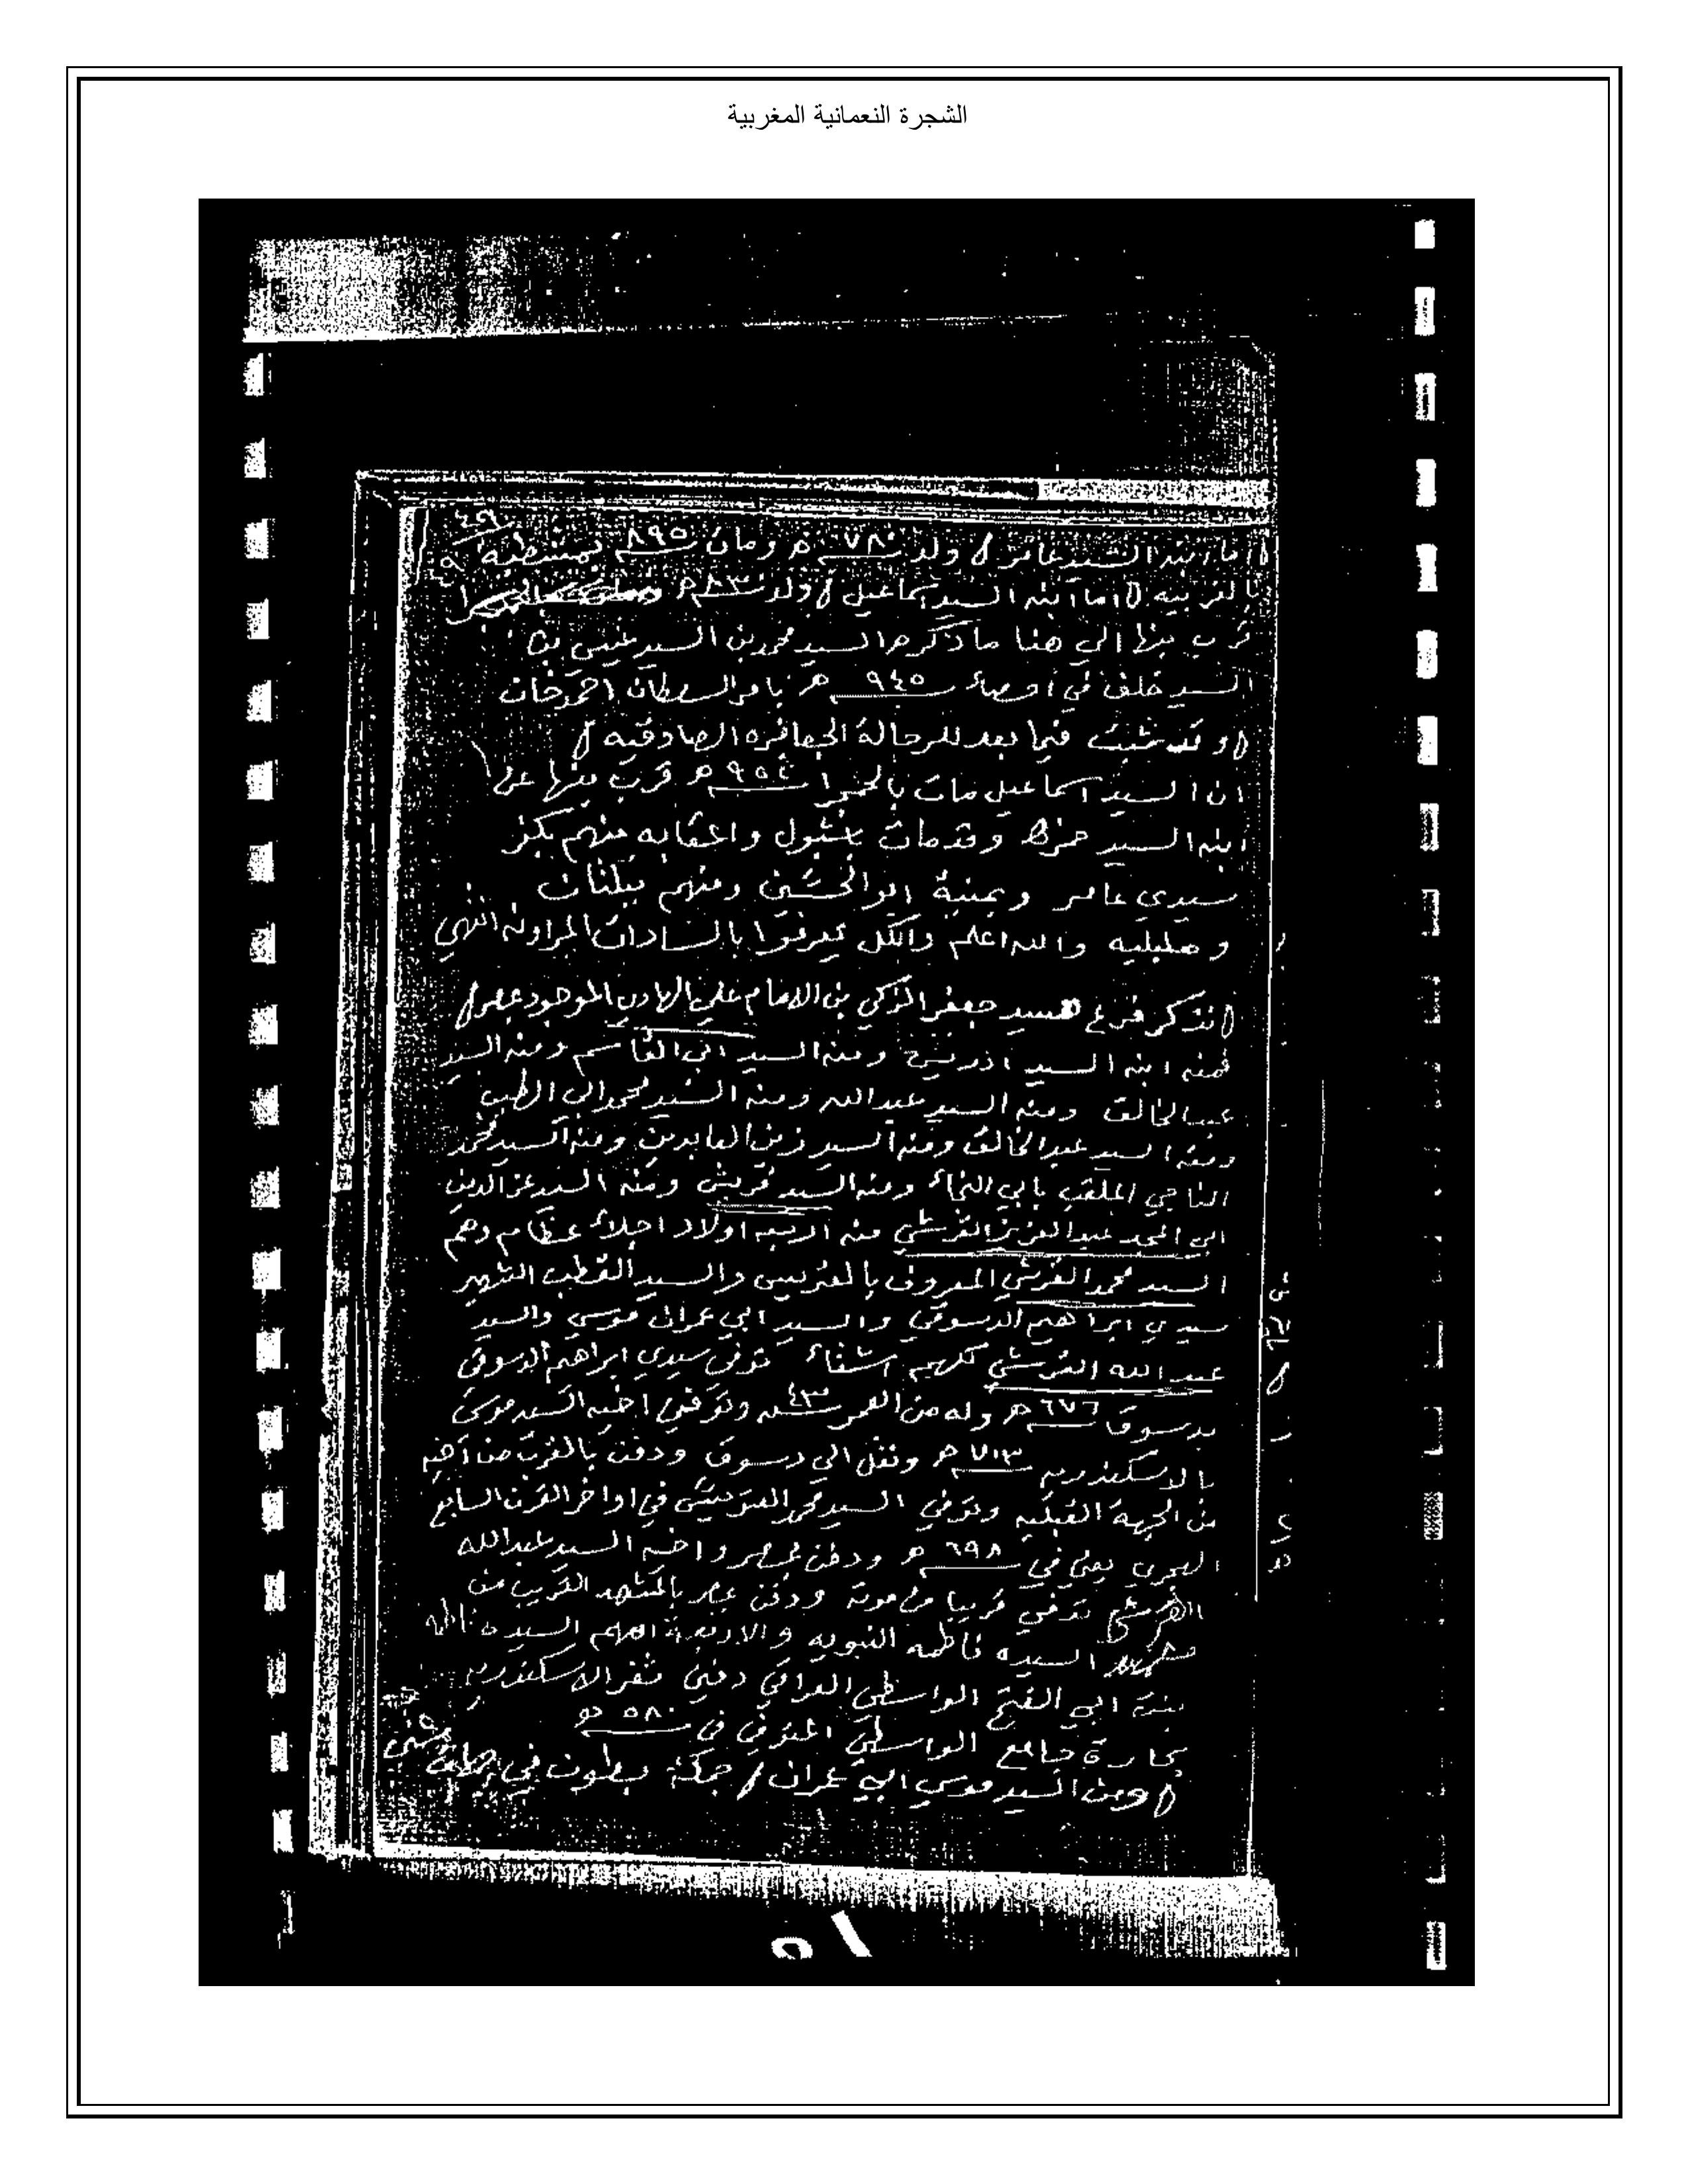 الشجرة النعمانية المغربية
٤٩
٤٩
اما ابنه السيد عامر ولد ٧٨٠ هـ ومات ٨٩٥
بالغربيه اما ابنه السيد اسماعيل ولد
قرب بنها الى هنا ما ذكره السيد محمد بن السيد عيسى بن
السيد خلف في ٩٤٥ هـ بامر السلطان احمد خان
وقد ثبت فيما بعد للرحالة الجعافره الصادقيه
ان السيد اسماعيل مات ٩٥٤ هـ قرب بنها عن
ابنه السيد حمزه وقد مات واعقابه منهم بكفر
سيدي عامر وبمنية ابو الحسين ومنهم
والله اعلم والكل يعرفوا بالسادات انتهى
نذكر فرع السيد جعفر الزكي بن الامام علي الهادي الموجود بمصر
فمنه ابنه السيد ادريس ومنه السيد ابي القاسم ومنه السيد
عبد الخالق ومنه السيد عبد الله ومنه السيد محمد ابي الطيب
ومنه السيد عبد الخالق ومنه السيد زين العابدين ومنه السيد محمد
الناجي الملقب بابي النجاء ومنه السيد قريش ومنه السيد عز الدين
ابي المجد عبد العزيز القرشي منه اربعه اولاد اجلاء عظام وهم
السيد محمد القرشي المعروف بالعتريس والسيد القطب الشهير
سيدي ابراهيم الدسوقي والسيد ابي عمران موسي والسيد
عبد الله القرشي كلهم اشقاء توفى سيدي ابراهيم الدسوقي
بدسوق ٦٧٦ هـ وله من العمر ٤٣ سنه وتوفى اخيه السيد موسى
بالاسكندريه ٧١٣ هـ ونقل الي دسوق ودفن بالقرب من اخيه
من الجهة القبليه وتوفي السيد محمد العتريس في اواخر القرن السابع
الهجري يعني في ٦٩٨ هـ ودفن بمصر واخيه السيد عبد الله
القرشي توفي قريبا من موته ودفن بمصر بالمشهد القريب من
مشهد السيده فاطمه النبويه والاربعة امهم السيده فاطمه
بنت ابي الفتح الواسطي العراقي دفين ثغر الاسكندريه
بحارة جامع الواسطي المتوفي في ٥٨٠ هـ
ومن السيد موسي ابي عمران جملة بطون في
٥١